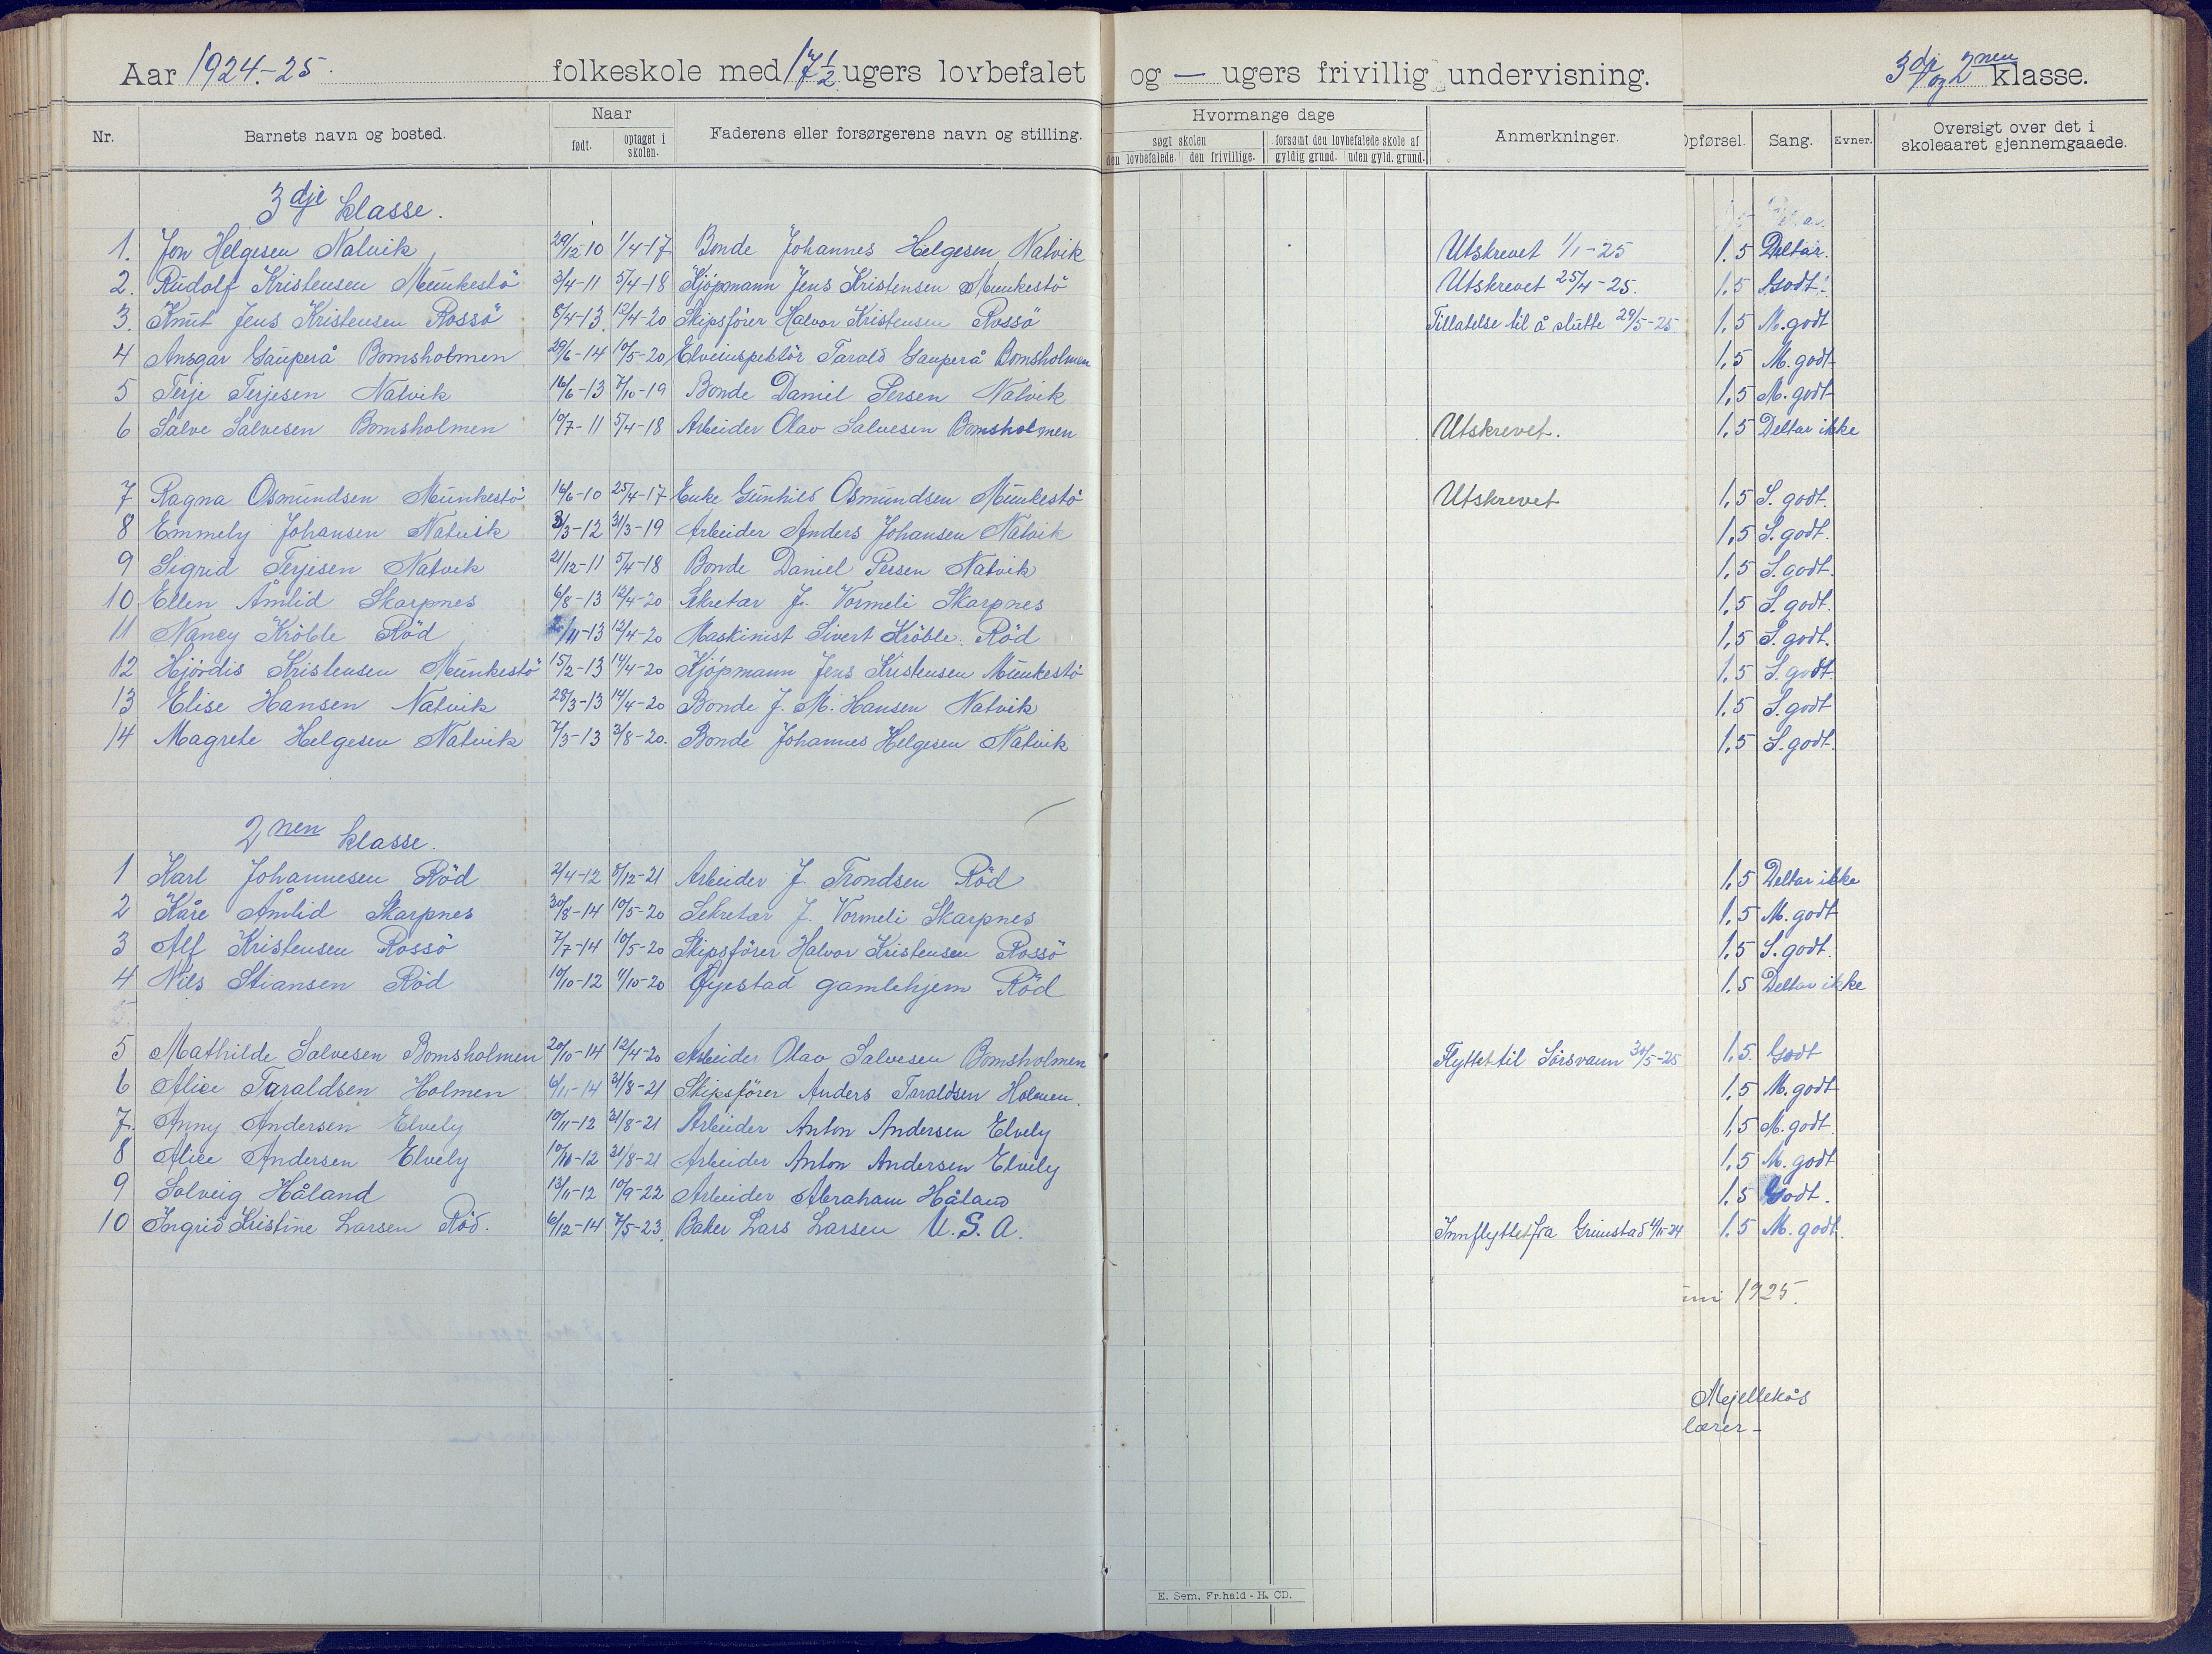 Aar 1924.-25. folkeskole med 17 1/2 ugers lovbefalet og — ugers frivillig undervisning. 3dje og 2nen klasse.
Nr. Barnets navn og bosted. Naar født. optaget i skolen. Faderens eller forsørgerens navn og stilling. Hvormange dage søgt skolen den lovbefalede. den frivillige. forsømt den lovbefalede skole af gyldig grund. uden gyld. grund. Anmerkninger. Opførsel. Sang. Evner. Oversigt over det i skoleaaret gjennemgaaede.
3dje klasse.
1. Jon Helgesen Natvik 29/12-10 1/4-17 Bonde Johannes Helgesen Natvik Utskrevet 1/1-25 1.5 Deltar.
2. Rudolf Kristensen Munkestö 3/4-11 5/4-18 Kjöpmann Jens Kristensen Munkestö Utskrevet 25/4-25. 1.5 Godt.
3. Knut Jens Kristensen Rossö 8/4-13. 12/4-20 Skipsförer Halvor Kristensen Rossö Tillatelse til å slutte 29/5-25 1.5 M. godt
4 Ansgar Gauperå Bomsholmen 29/6-14 10/5-20 Elveinspektör Tarald Gauperå Bomsholmen 1,5 M. godt
5 Terje Terjesen Natvik 16/6-13 7/10-19 Bonde Daniel Persen Natvik 1,5 M. godt
6 Salve Salvesen Bomsholmen 10/7-11 5/4-18 Arbeider Olav Salvesen Bomsholmen Utskrevet. 1,5 Deltar ikke
7 Ragna Osmundsen Munkestö 16/6-10 25/4-17 Enke Gunhild Osmundsen Munkestö Utskrevet 1,5 S. godt.
8 Emmely Johansen Natvik 3/3-12 31/3-19 Arbeider Anders Johansen Natvik 1,5 S. godt.
9 Sigrid Terjesen Natvik 21/12-11 5/4-18 Bonde Daniel Persen Natvik 1,5 S. godt.
10 Ellen Åmlid Skarpnes 6/8-13 12/4-20 Sekretær J. Vormeli Skarpnes 1,5 S. godt.
11 Nancy Kröble Röd /11-13 12/4-20 Maskinist Sivert Kröble. Röd 1,5 S. godt.
12 Hjördis Kristensen Munkestö 15/2-13 14/4-20 Kjöpmann Jens Kristensen Munkestö 1.5 S. godt.
13 Elise Hansen Natvik 28/3-13 14/4-20 Bonde J. M. Hansen Natvik 1.5 S. godt
14 Magrete Helgesen Natvik 7/3-13 3/8-20. Bonde Johannes Helgesen Natvik 1,5 S. godt.
2nen klasse.
1 Karl Johannesen Röd 2/4-12 8/12-21 Arbeider J. Trondsen Röd 1,5 Deltar ikke
2 Kåre Åmlid Skarpnes 30/8-14 10/5-20 Sekretær J. Vormeli Skarpnes 1.5 M. godt
3 Alf Kristensen Rossö 7/7-14 10/5-20 Skipsförer Halvor Kristensen Rossö 1.5 S. godt.
4 Nils Stiansen Röd 10/10-12 11/10-20 Öyestad gamlehjem Röd 1.5 Deltar ikke
5 Mathilde Salvesen Bomsholmen 20/10-14 12/4-20 Arbeider Olav Salvesen Bomsholmen Flyttet til Sörsvann 30/5-25 1,5. Godt
6 Alice Taraldsen Holmen 6/11-14 31/8-21 Skipsförer Anders Taraldsen Holmen. 1,5 M. godt
7. Anny Andersen Elvely 10/11-12 31/8-21 Arbeider Anton Andersen Elvely 1,5 M. godt.
8 Alice Andersen Elvely 10/11-12 31/8-21 Arbeider Anton Andersen Elvely 1,5 M. godt
9 Solveig Håland 13/11-12 10/9-22 Arbeider Abraham Håland 1.5 Godt.
10 Ingrid Kristine Larsen Röd. 6/12-14 7/5-23. Baker Lars Larsen U.S.A. Innflyttet fra Grimstad 4/11-24 1.5 M. godt.
1925.
Mejellekås
lærer-
E. Sem. Fr.hald - H. CD.